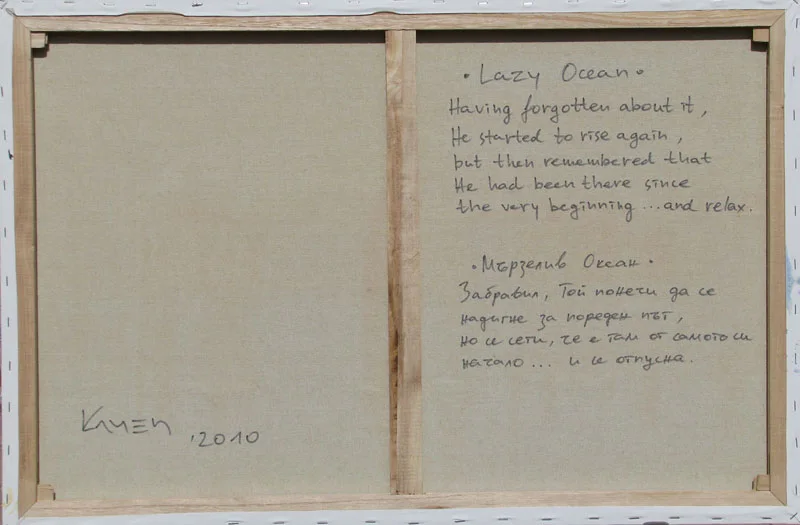 • Lazy Ocean •
Having forgotten about it,
He started to rise again,
but then remembered that
He had been there since
the very beginning ... and relax.
• Мързелив Океан •
Забравил, Той понечи да се
надигне за пореден път,
но се сети, че е там от самото си
начало... и се отпусна.
,2010